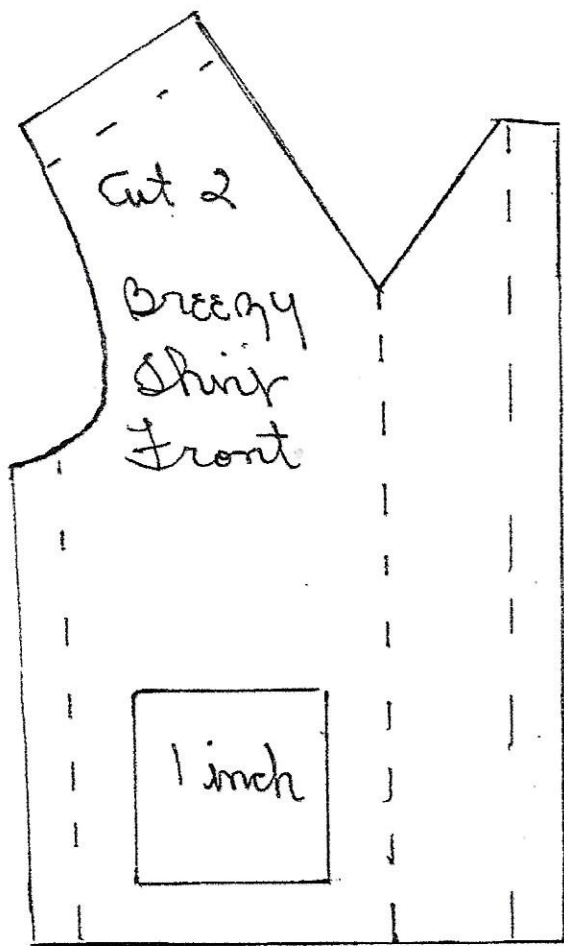 Cut 2
Breezy
Shirt
Front
1 inch